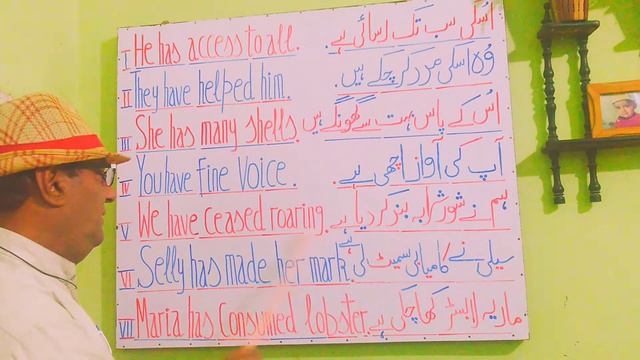 I He has access to all. اُسکی سب تک رسائی ہے۔
II They have helped him. وُہ اسکی مدد کر چکے ہیں۔
III She has many shells. اُس کے پاس بہت سے گھونگے ہیں
IV You have Fine Voice. آپ کی آواز اچھی ہے۔
V We have ceased roaring. ہم نے شور شرابہ بند کر دیا ہے
VI Selly has made her mark. سیلی نے کامیابی سمیٹ لی ہے
VII Maria has Consumed lobster. ماریہ لابسٹر کھا چکی ہے